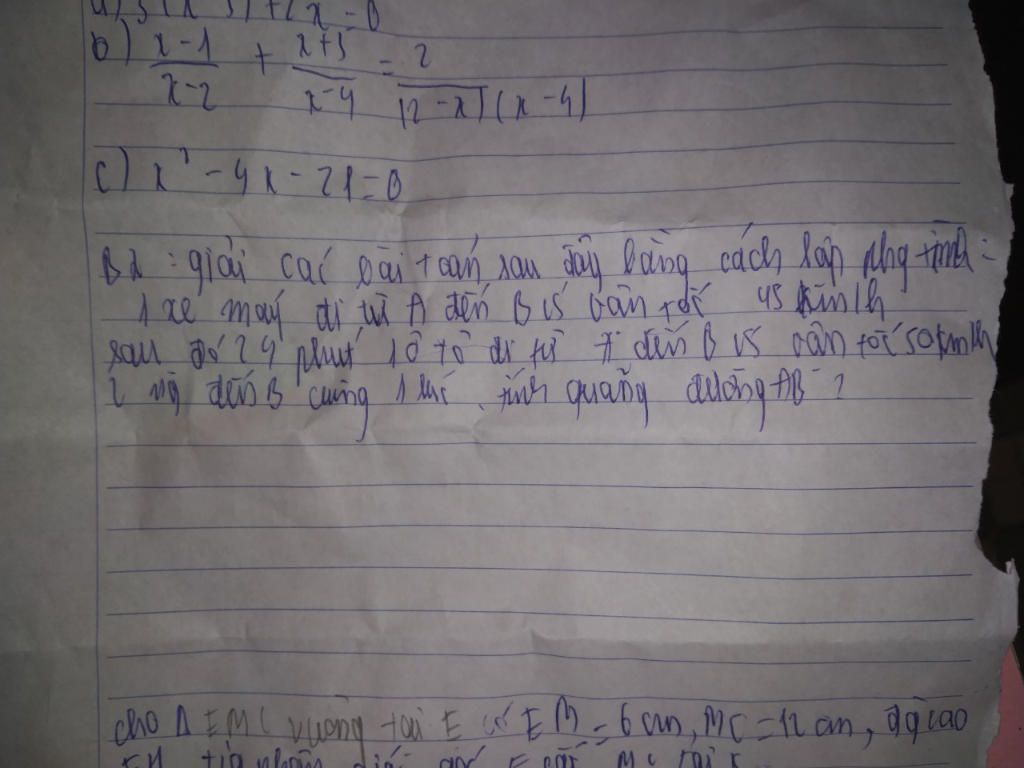 b) x-1/x-2 + x+3/x-4 = 2/(2-x)(x-4)
c) x² - 4x - 21 = 0
B2 : giải các bài toán sau đây bằng cách lập phg tình :
1 xe máy đi từ A đến B vs vận tốc 45 km/h
sau đó 24 phút 1 ô tô đi từ A đến B vs vận tốc 50km/h
2 ng đến B cùng 1 lúc. tính quãng đường AB ?
cho Δ EMC vuông tại E có EM = 6 cm, MC = 12 cm, đg cao